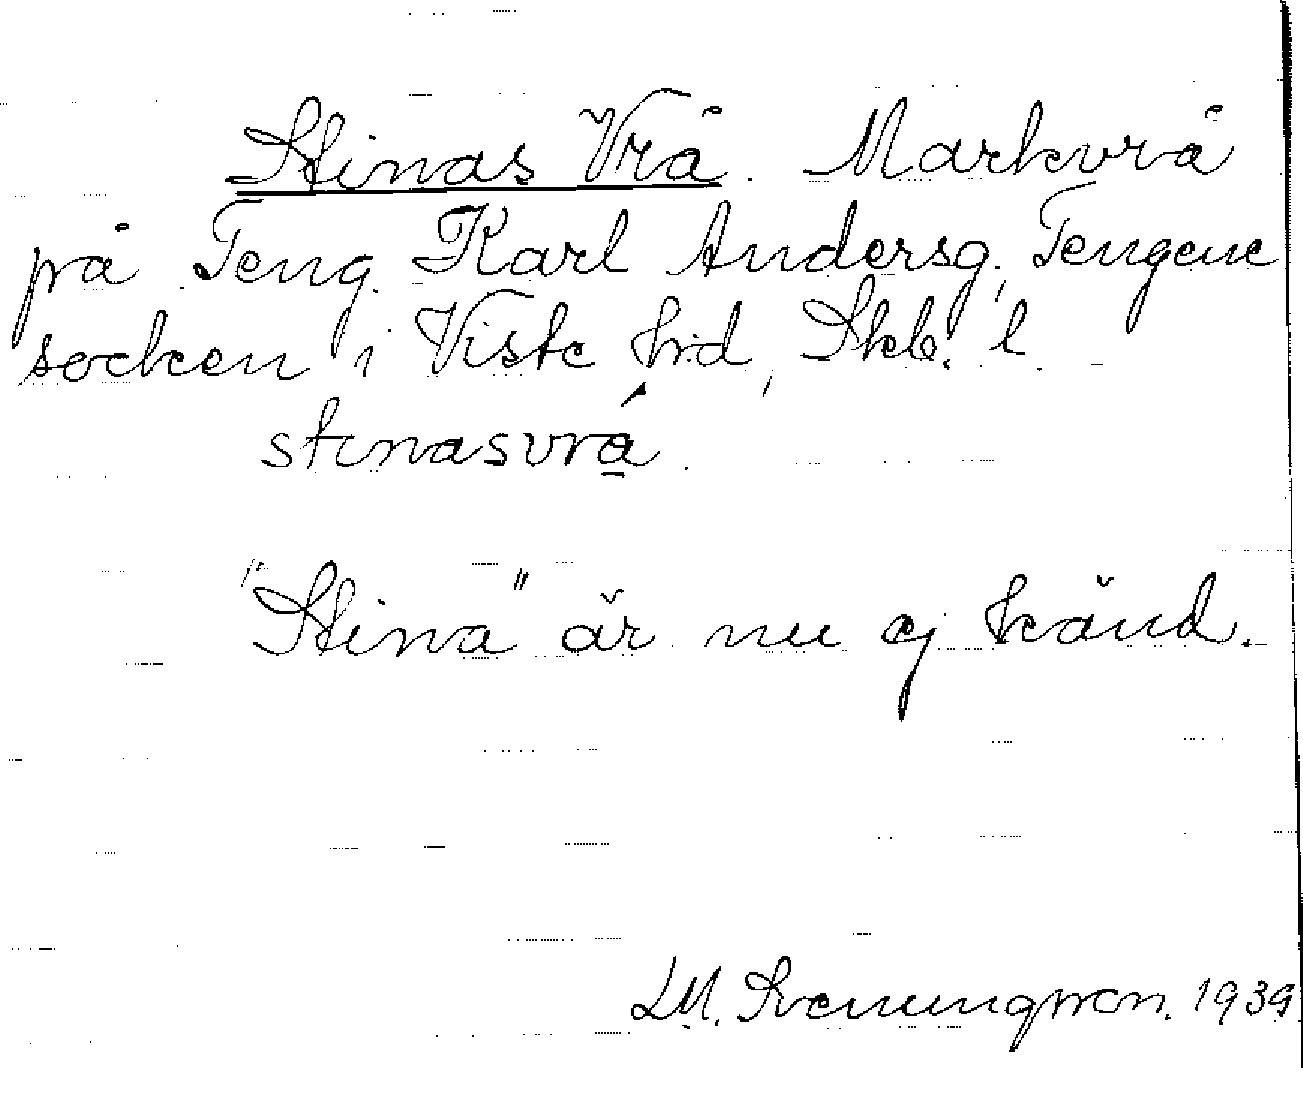 Stinas Vrå. Markvrå
på Teng Karl Andersg, Tengene
socken i Viste hrd, Skb. l.
stinasvrá
"Stina" är nu ej känd.
LM. Svenungsson. 1939